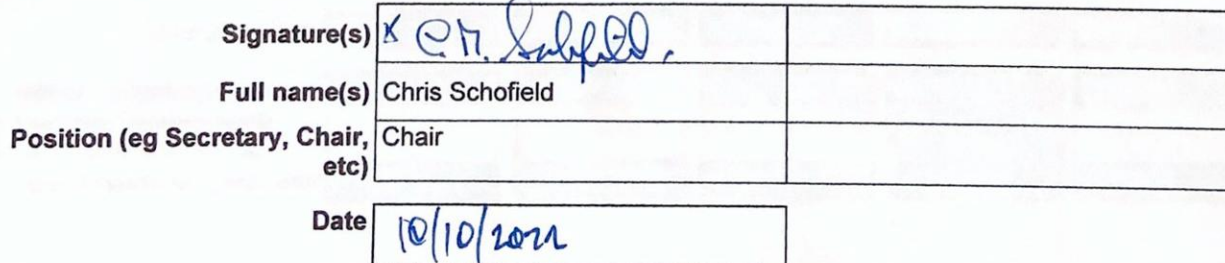 Signature(s) X C M. Schofield.
Full name(s) Chris Schofield
Position (eg Secretary, Chair, Chair
etc)
Date 10/10/2022